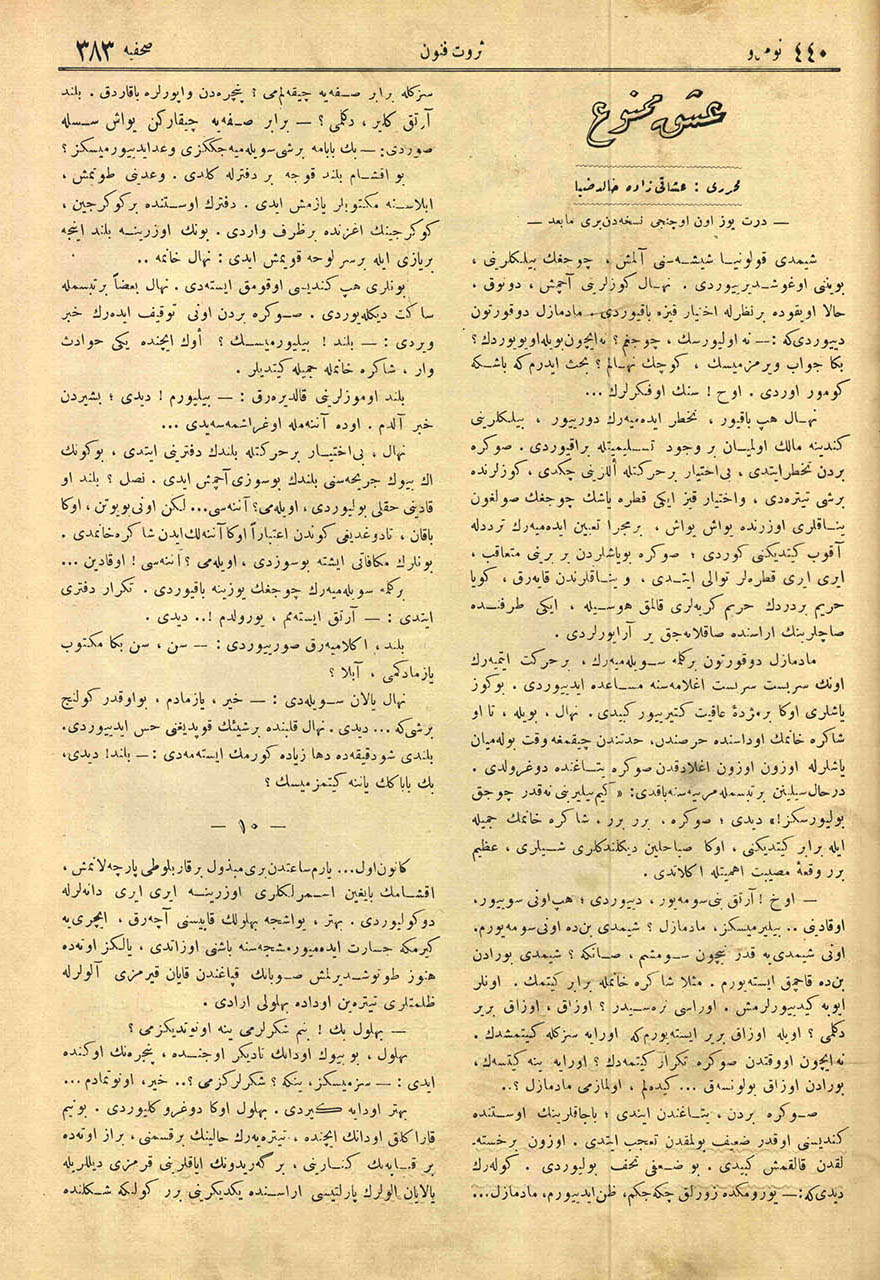 نومرو ٤٤٠
ثروت فنون
صحیفه ٣٨٣
عشق ممنوع
محرری : عشاقی زاده خالد ضیا
— درت یوز اون اوچنجی نسخه‌دن بری مابعد —
شیمدی قولونیا شیشه‌سنی آلمش ، چوجغك بیلكلرینی ،
بویننی اوغوشدیرییوردی . نهال كوزلرینی آچمش ، دونوق ،
حالا اویقوده بر نظرله اختیار قیزه باقیوردی . مادمازل دوقورتون
دییوردی‌كه : — نه اولیورسك ، چوجغم ؟ نه‌ایچون بویله اویویوردك ؟
بكا جواب ویرمزمیسك ، كوچك نهالم ؟ بحث ایدرم كه باشكه
كومور اوردی . اوح ! سنك اوفكرلرك ...
نهال هپ باقیور ، تخطر ایده‌میه‌رك دورییور ، بیلكلرینی
كندینه مالك اولمیان بر وجود تسلیمیتله براقیوردی . صوكره
بردن تخطر ایتدی ، بی‌اختیار برحركتله أللرینی چكدی ، كوزلرنده
برشی تیتره‌دی ، واختیار قیز ایكی قطره یاشك چوجغك صولغون
یناقلری اوزرنده یواش یواش ، برمجرا تعیین ایده‌میه‌رك ترددله
آقوب كیتدیكنی كوردی ؛ صوكره بویاشلردن بر برینی متعاقب ،
ایری ایری قطره‌لر توالی ایتدی ، و یناقلرندن قایه‌رق ، كویا
حریم بردردك حریم كریه‌لری قالمق هوسیله ، ایكی طرفنده
صاچلرینك اراسنده صاقلانه‌جق یر آرایورلردی .
مادمازل دوقورتون بركلمه سویله‌میه‌رك ، برحركت ایتمیه‌رك
اونك سربست سربست اغلامه‌سنه مساعده ایدییوردی . بوكوز
یاشلری اوكا برمژدهٔ عاقبت كتیرییور كبیدی . نهال ، بویله ، تا او
شاكره خانمك اوداسنده حرصندن، حدتندن چیقمغه وقت بوله‌میان
یاشلرله اوزون اوزون اغلادقدن صوكره یتاغنده دوغرولدی .
درحال سیلینن برتبسمله مربیه‌سنه باقدی : « كیم بیلیر بنی نه‌قدر چوجق
بولیورسكز !» دیدی ؛ صوكره ، برر برر ، شاكره خانمك جمیله
ایله برابر كیتدیكنی ، اوكا صباحلین دیكلندكلری شیلری ، عظیم
برر وقعهٔ مصیبت اهمیتله اكلاتدی .
— اوخ ! آرتق بنی سومه‌یور ، دییوردی ؛ هپ اونی سویییور،
اوقادینی .. بیلیرمیسكز ، مادمازل ؟ شیمدی بن‌ده اونی سومه‌یورم.
اونی شیمدی‌یه قدر نیچون سومشم ، صانكه ؟ شیمدی بورادن
بن‌ده قاچمق ایسته‌یورم . مثلا شاكره خانمله برابر كیتمك . اونلر
ایوبه كیدییورلرمش . اوراسی نره‌سیدر ؟ اوزاق ، اوزاق بریر
دكلمی ؟ اویله اوزاق بریر ایسته‌یورم كه اورایه سزكله كیتمشدك .
نه‌ایچون اووقتدن صوكره تكرار كیتمه‌دك ؟ اورایه ینه كیتسه‌ك،
بورادن اوزاق بولونسه‌ق ... كیده‌لم ، اولمازمی مادمازل ؟..
صوكره بردن ، یتاغندن ایندی ؛ باجاقلرینك اوستنده
كندیسنی اوقدر ضعیف بولمقدن تعجب ایتدی . اوزون برخسته-
لقدن قالقمش كبیدی . بو ضعفی تحف بولیوردی . كوله‌رك
دیدی‌كه : — یورومكده زورلق چكه‌جكم، ظن ایدییورم، مادمازل...
سزكله برابر صفه‌یه چیقه‌لم‌می ؟ پنجره‌دن واپورلره باقاردق . بلند
آرتق كلیر ، دكلمی ؟ — برابر صفه‌یه چیقاركن یواش سسله
صوردی : — بك بابامه برشی سویله‌میه‌جككزی وعد ایدییورمیسكز ؟
بو اقشام بلند قوجه بر دفترله كلدی . وعدینی طوتمش ،
ابلاسنه مكتوبلر یازمش ایدی . دفترك اوستنده بركوكرجین ،
كوكرجینك اغزنده برظرف واردی . بونك اوزرینه بلند اینجه
بریازی ایله برسرلوحه قویمش ایدی : نهال خانمه ..
بونلری هپ كندیسی اوقومق ایسته‌دی . نهال بعضاً برتبسمله
ساكت دیكله‌یوردی . صوكره بردن اونی توقیف ایده‌رك خبر
ویردی : — بلند ! بیلیورمیسك ؟ أوك ایچنده یكی حوادث
وار ، شاكره خانمله جمیله كیتدیلر .
بلند اوموزلرینی قالدیره‌رق : — بیلیورم ! دیدی ؛ بشیردن
خبر آلدم . اوده آننه‌مله اوغراشمه‌سه‌یدی ...
نهال ، بی‌اختیار برحركتله بلندك دفترینی ایتدی ، بوكونك
اك بیوك جریحه‌سنی بلندك بوسوزی آچمش ایدی . نصل ؟ بلند او
قادینی حقلی بولیوردی ، اویله‌می؟ آننه‌سی... لكن اونی بویوتن ، اوكا
باقان ، تا دوغدیغی كوندن اعتباراً اوكا آننه‌لك ایدن شاكره خانمدی .
بونلرك مكافاتی ایشته بوسوزدی ، اویله‌می ؟ آننه‌سی ! اوقادین ...
بركلمه سویله‌میه‌رك چوجغك یوزینه باقیوردی . تكرار دفتری
ایتدی : — آرتق ایسته‌مم ، یورولدم !.. دیدی .
بلند ، اكلامیه‌رق صورییوردی : — سن ، سن بكا مكتوب
یازمادكمی ، آبلا ؟
نهال یالان سویله‌دی : — خیر ، یازمادم ، بواوقدر كولنج
برشی‌كه ... دیدی . نهال قلبنده برشیئك قوپدیغنی حس ایدییوردی.
بلندی شودقیقه‌ده دها زیاده كورمك ایسته‌مه‌دی : — بلند! دیدی،
بك باباكك یاننه كیتمزمیسك ؟
— ١٠ —
كانون اول... یارم ساعتدن بری مبذول برقار بلوطی پارچه‌لانمش ،
اقشامك بایغین اسمرلكلری اوزرینه ایری ایری دانه‌لرله
دوكولیوردی . بهتر ، یواشجه بهلولك قاپیسنی آچه‌رق ، ایچری‌یه
كیرمكه جسارت ایده‌میورمشجه‌سنه باشنی اوزاتدی ، یالكز اوته‌ده
هنوز طوتوشدیرلمش صوبانك قپاغندن قایان قیرمزی آلولرله
ظلمتلری تیتره‌ین اوداده بهلولی ارادی .
— بهلول بك ! بنم شكرلرمی ینه اونوتدیكزمی ؟
بهلول ، بو بیوك اودانك تادیكر اوجنده ، پنجره‌نك اوكنده
ایدی : — سزمیسكز، ینكه ؟ شكرلركزمی ؟.. خیر، اونوتمادم ...
بهتر اودایه كیردی . بهلول اوكا دوغرو كلیوردی . بونیم
قاراكلق اودانك ایچنده ، تیتره‌یه‌رك حالینك برقسمنی ، براز اوته‌ده
بر قناپه‌نك كنارینی ، برگه‌ریدونك ایاقلرینی قرمزی دیللریله
یالایان الولرك پارلتیسی اراسنده یكدیكرینی برر كولكه شكلنده